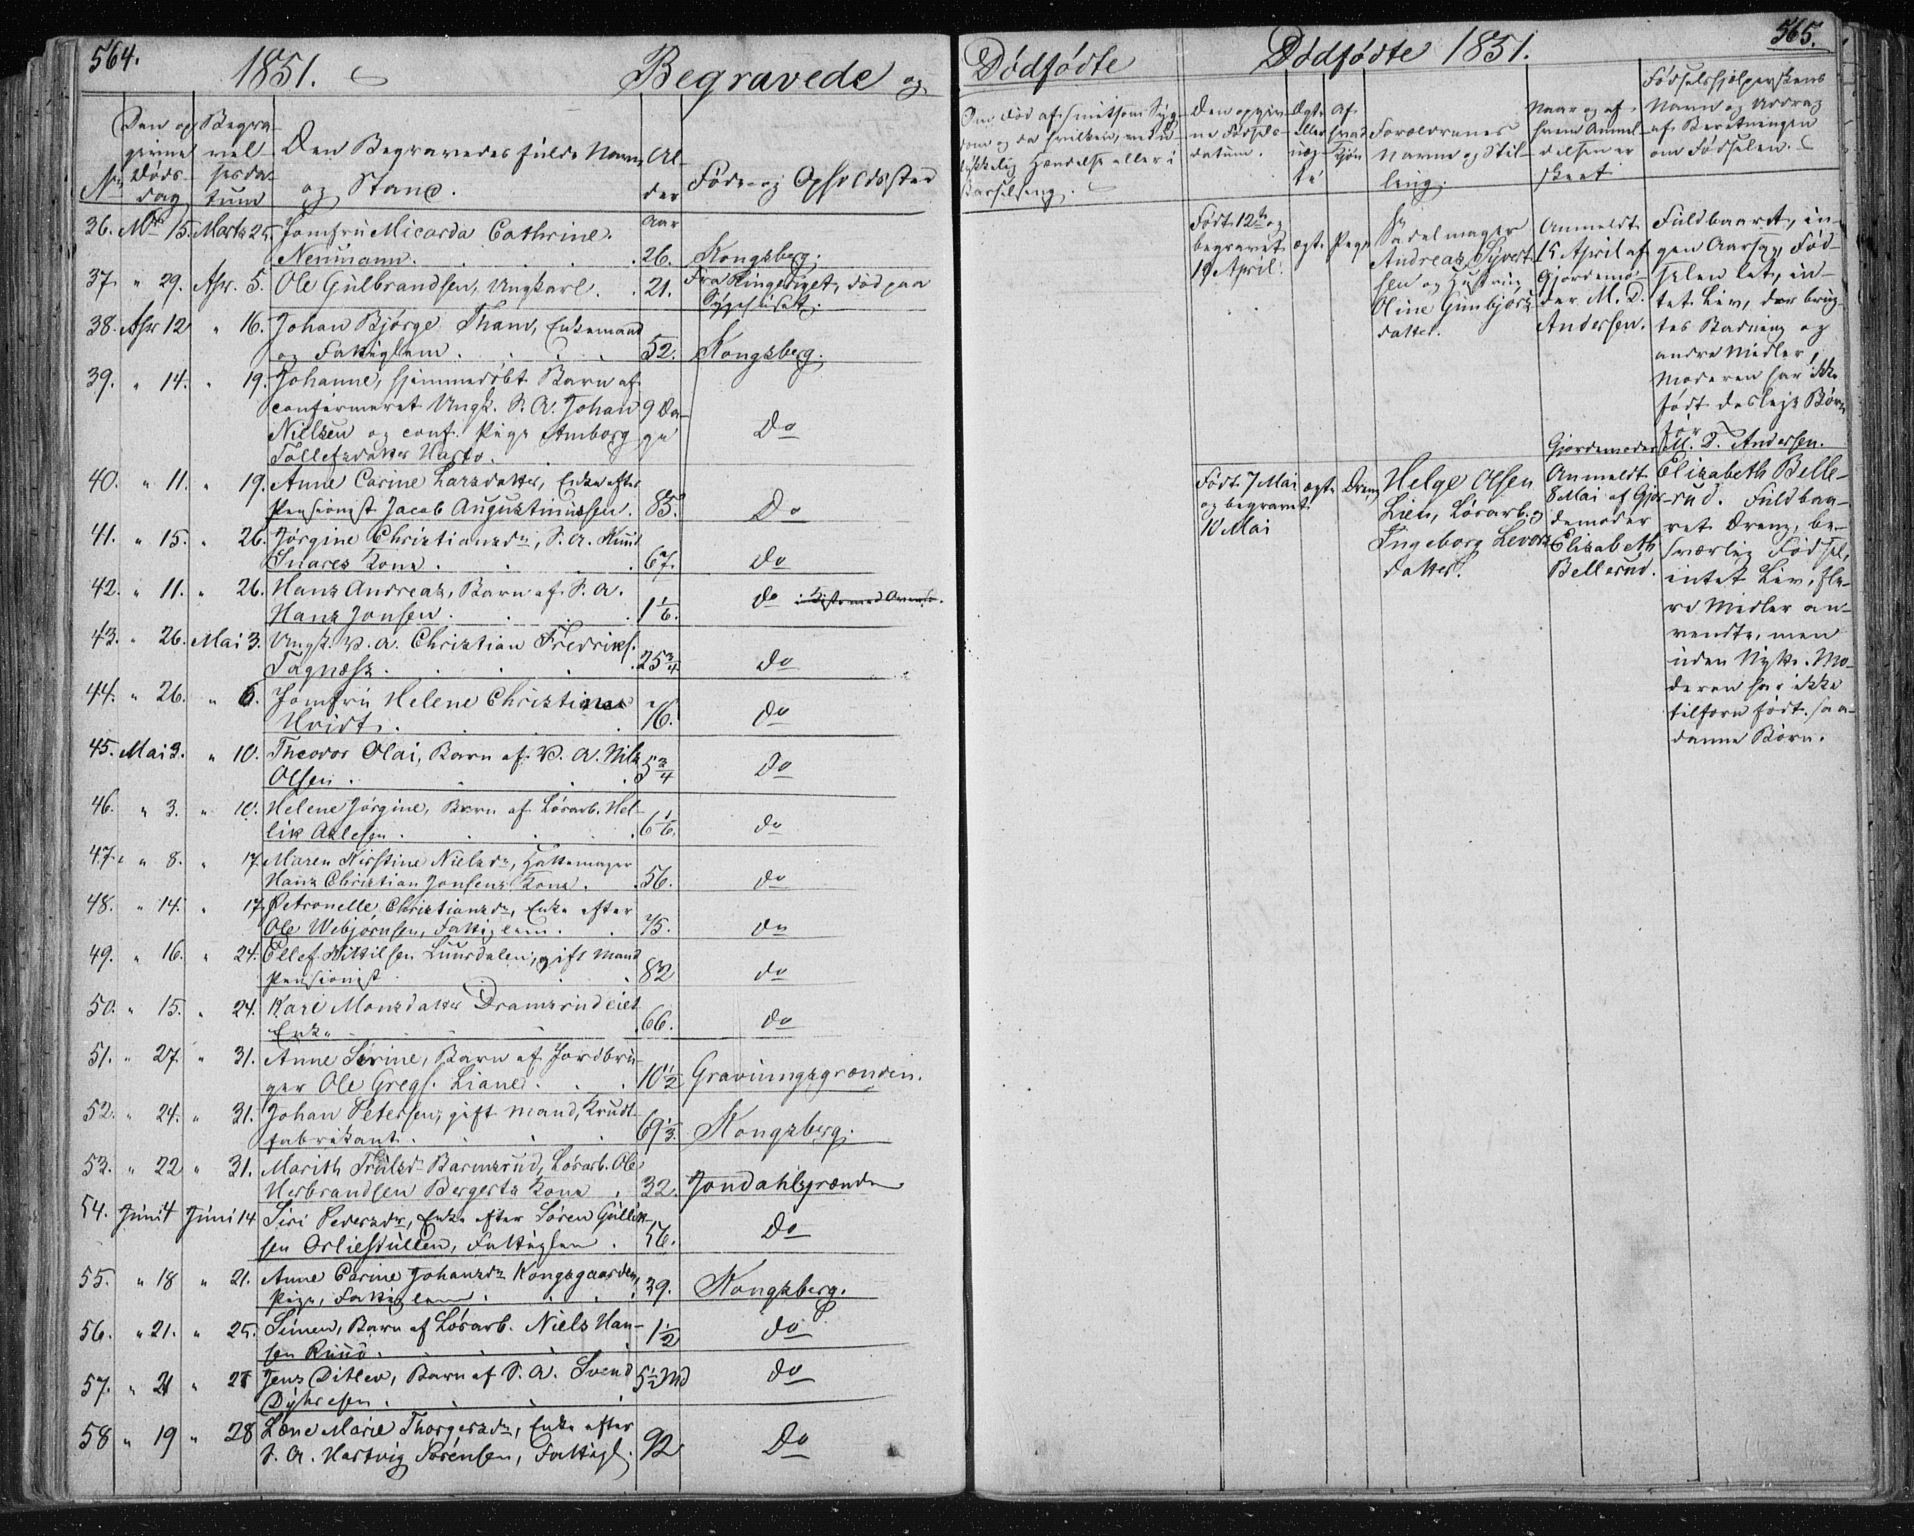 564.
1851.
Begravede og
No
Den op-
givne
Døds-
dag
Begra-
vel-
sesda-
tum
Den Begravedes fulde Navn
og Stand.
Al-
der
Føde- og Opholdssted
Aar
36. Mts 15. Marts 25. Jomfru Micarda Cathrine
Neumann. 26. Kongsberg.
37. " 29. Apr. 5. Ole Gulbrandsen, Ungkarl. 21. Fra Ringeriget, død paa
Sygehuset.
38. Apr 12 " 16. Johan Bjørge Tham, Enkemand
og Fattiglem. 52. Kongsberg.
39. " 14. " 19. Johanne, hjemmedøbt Barn af
confirmeret Ungk. S. A. Johan 9 Da-
Nielsen og conf. Pige Amborg ge Do
Tollefsdatter
40. " 11. " 19. Anne Carine Larsdatter, Enke efter
Pensionist Jacob Augustinussen. 85. Do
41. " 15. " 26. Jørgine Christiansdr, S. A. Knud
Snares Kone. 67. do
42. " 11. " 26. Hans Andreas, Barn af S. A.
Hans Jonsen. 1 1/6. do
43. " 26. Mai 3. Ungk. V. A. Christian Fredriks.
Tagnæss. 25 3/4 do
44. " 26. " 6. Jomfru Helene Christiane
Hvidt. 76. do
45. Mai 3. " 10. Theodor Olai, Barn af V. A. Nils
Olsen. 5 3/4 do
46. " 3. " 10. Helene Jørgine, Barn af Løsarb. Hel-
lik Aslesen. 6 1/6. do
47. " 8. " 17. Maren Kirstine Nielsdr, Hattemager
Hans Christian Jonsens Kone. 56. do
48. " 14. " 17. Petronelle Christiansdr, Enke efter
Ole Wibjørnsen, Fattiglem. 75. do
49. " 16. " 24. Ellef Kittilsen Luursdalen, gift Mand
Pensionist 82 do
50. " 15. " 24. Kari Monsdatter Dramsrudeiet
Enke 66. do
51. " 27. " 31. Anne Serine, Barn af Jordbru-
ger Ole Gregs. Liane. 10 1/2 Gravningsgrænden.
52. " 24. " 31. Johan Petersen, gift Mand, Krudt-
fabrikant. 69 1/3. Kongsberg.
53. " 22 " 31. Marith Trulsdr Barmsrud, Løsarb. Ole
Herbrandsen Bergerts Kone. 32. Jondahlsgrænden
54. Juni 4 Juni 14 Siri Pedersdr, Enke efter Søren Gullik-
sen Orliestullen, Fattiglem. 56. do
55. " 18 " 21. Anne Carine Johansdr Kongsgaarden,
Pige, Fattiglem. 39. Kongsberg.
56. " 21. " 25. Simen, Barn af Løsarb. Niels Han-
sen Ruud. 1 1/2 do
57. " 21 " 28 Jens Ditlev, Barn af S. A. Svend
Dyhresen. 5 1/2 Md do
58 " 19 " 28 Lene Marie Thorgersdr, Enke efter
S. A. Hartvig Sørensen, Fattigl. 92 Do
565.
Dødfødte
Dødfødte 1851.
Om død af smitsom Syg-
dom og da hvilken, ved u-
lykkelig Hændelse eller i
Barselseng.
Den opgiv-
ne Fødsels-
datum.
Ægte
eller
uæg-
te
Af
hvad
Kjøn
Forældrenes
Navn og Stil-
ling.
Naar og af
hvem Anmel-
delsen er
skeet
Fødselshjælperskens
Navn og Uddrag
af Beretningen
om Fødselen.
Født 12te og
begravet
19 April.
ægte Pige
Sadelmager
Andreas Syvert-
sen og Hustru
Oline Gunbjørns-
datter.
Anmeldt
15 April af
Gjordemo-
der M. D.
Andersen.
Fuldbaaret, in-
gen Aarsag, Fød-
selen let, in-
tet Liv, der brug-
tes Badning og
andre Midler,
Moderen har ikke
født deslige Børn
før
M. D. Andersen.
Født 7 Mai
og begravet
10 Mai
ægte Dreng
Helge Olsen
Lien, Løsarb. og
Ingeborg Levors-
datter.
Gjordemoder
Anmeldt
8 Mai af Gjor-
demoder
Elisabeth
Bellerud.
Elizabeth Belle-
rud. Fuldbaa-
ret Dreng, be-
sværlig Fødsel,
intet Liv, fle-
re Midler an-
vendte, men
uden Nytte. Mo-
deren har ikke
tilforn født saa-
danne Børn.